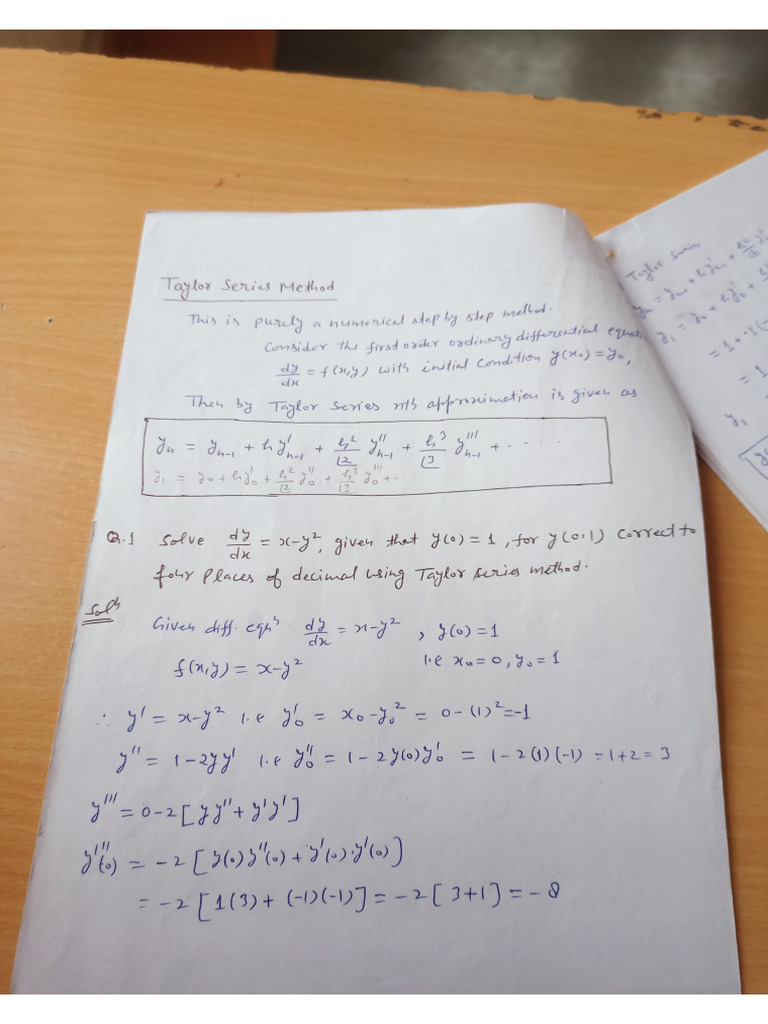 Taylor Series Method
This is purely a numerical step by step method.
Consider the first order ordinary differential
dy/dx = f(x,y) with initial condition y(x₀) = y₀,
Then by Taylor Series nth approximation is given as
yₙ = yₙ₋₁ + hy'ₙ₋₁ + h²/⌊2 y''ₙ₋₁ + h³/⌊3 y'''ₙ₋₁ + ....
y₁ = y₀ + hy'₀ + h²/⌊2 y''₀ + h³/⌊3 y'''₀ + ..
Q.1 Solve dy/dx = x-y², given that y(0) = 1, for y(0.1) correct to
four places of decimal using Taylor series method.
Solⁿ
Given diff. eqⁿ dy/dx = x-y², y(0) = 1
f(x,y) = x-y² i.e x₀ = 0, y₀ = 1
∴ y' = x-y² i.e y'₀ = x₀-y₀² = 0-(1)² = -1
y'' = 1-2yy' i.e y''₀ = 1-2y(0)y'₀ = 1-2(1)(-1) = 1+2 = 3
y''' = 0-2[yy''+y'y']
y'''(0) = -2[y(0)y''(0)+y'(0).y'(0)]
= -2[1(3)+(-1)(-1)] = -2[3+1] = -8
Taylor Series
y₁ = y₀ + hy'₀ +
= 1 +
= 1
y₁